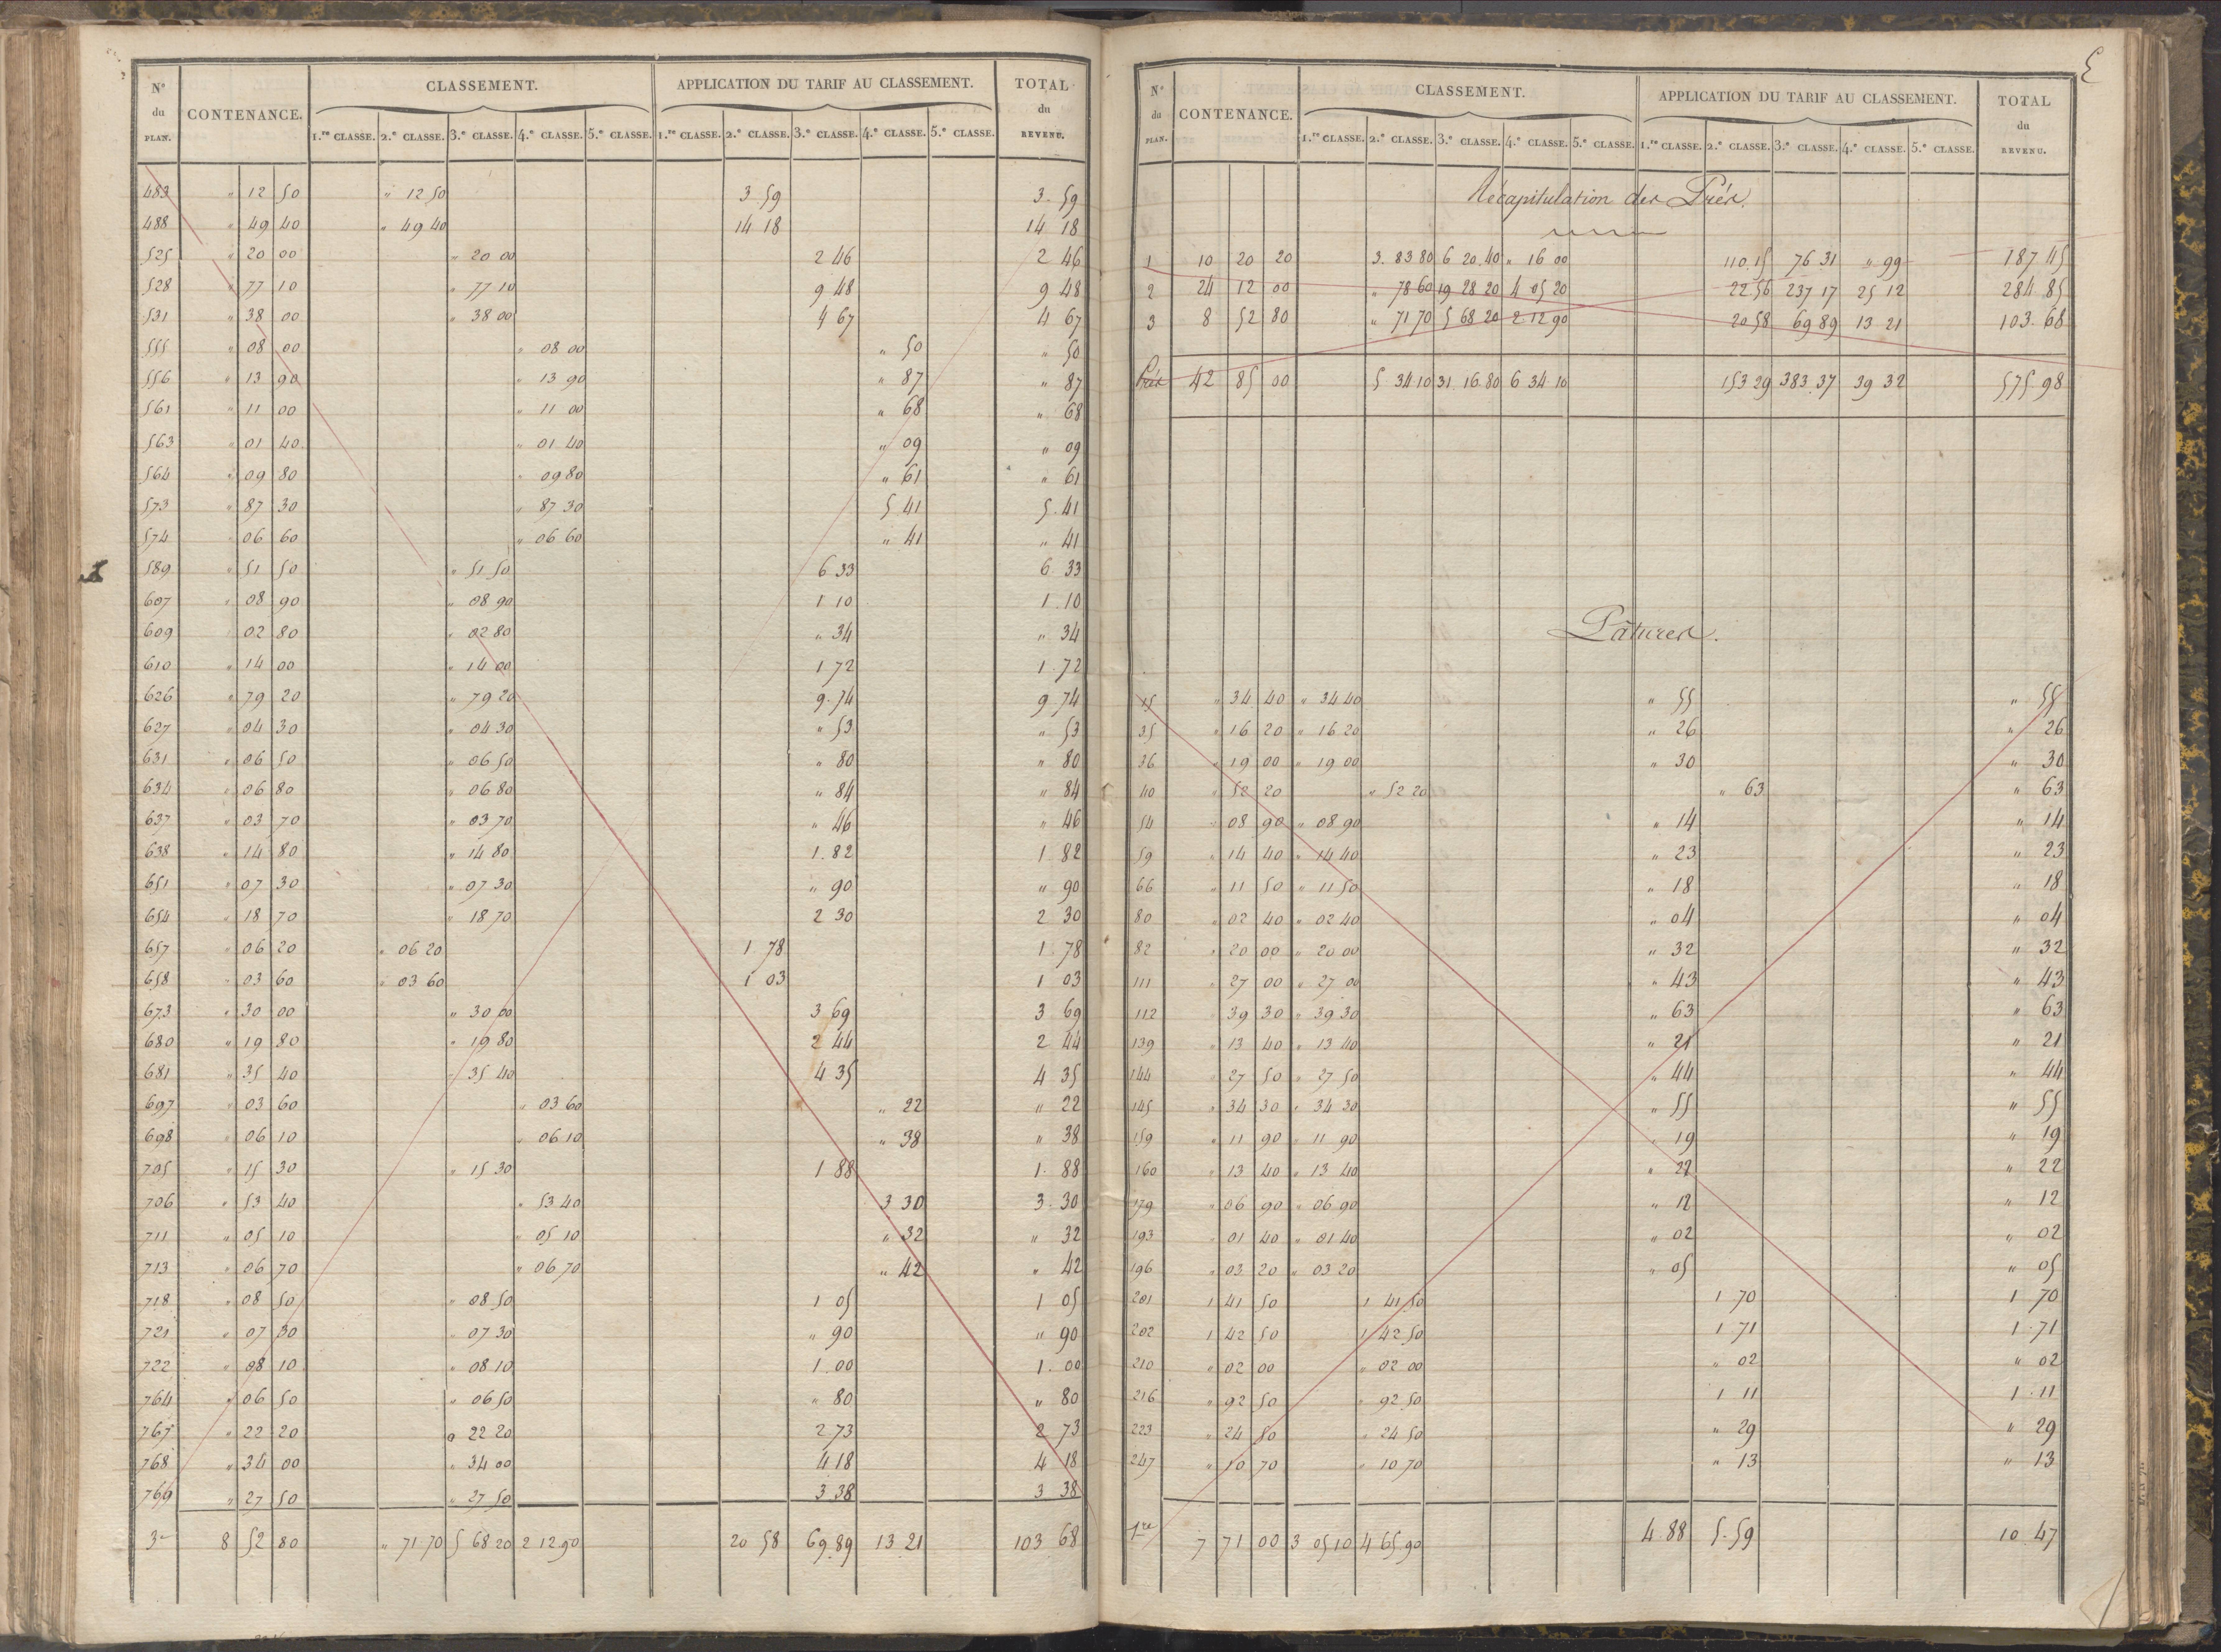 N° du PLAN. CONTENANCE. CLASSEMENT. APPLICATION DU TARIF AU CLASSEMENT. TOTAL du REVENU.
1.re CLASSE. 2.e CLASSE. 3.e CLASSE. 4.e CLASSE. 5.e CLASSE. 1.re CLASSE. 2.e CLASSE. 3.e CLASSE. 4.e CLASSE. 5.e CLASSE.
483 " 12 50 " 12 50 3 59 3 59
488 " 49 40 " 49 40 14 18 14 18
525 " 20 00 " 20 00 2 46 2 46
528 " 77 10 " 77 10 9 48 9 48
531 " 38 00 " 38 00 4 67 4 67
555 " 08 00 " 08 00 " 50 " 50
556 " 13 90 " 13 90 " 87 " 87
561 " 11 00 " 11 00 " 68 " 68
563 " 01 40 " 01 40 " 09 " 09
564 " 09 80 " 09 80 " 61 " 61
573 " 87 30 " 87 30 5 41 5 41
574 " 06 60 " 06 60 " 41 " 41
589 " 51 50 " 51 50 6 33 6 33
607 " 08 90 " 08 90 1 10 1 10
609 " 02 80 " 02 80 " 34 " 34
610 " 14 00 " 14 00 1 72 1 72
626 " 79 20 " 79 20 9 74 9 74
627 " 04 30 " 04 30 " 53 " 53
631 " 06 50 " 06 50 " 80 " 80
634 " 06 80 " 06 80 " 84 " 84
637 " 03 70 " 03 70 " 46 " 46
638 " 14 80 " 14 80 1 82 1 82
651 " 07 30 " 07 30 " 90 " 90
654 " 18 70 " 18 70 2 30 2 30
657 " 06 20 " 06 20 1 78 1 78
658 " 03 60 " 03 60 1 03 1 03
673 " 30 00 " 30 00 3 69 3 69
680 " 19 80 " 19 80 2 44 2 44
681 " 35 40 " 35 40 4 35 4 35
697 " 03 60 " 03 60 " 22 " 22
698 " 06 10 " 06 10 " 38 " 38
705 " 15 30 " 15 30 1 88 1 88
706 " 53 40 " 53 40 3 30 3 30
711 " 05 10 " 05 10 " 32 " 32
713 " 06 70 " 06 70 " 42 " 42
718 " 08 50 " 08 50 1 05 1 05
721 " 07 30 " 07 30 " 90 " 90
722 " 08 10 " 08 10 1 00 1 00
764 " 06 50 " 06 50 " 80 " 80
767 " 22 20 " 22 20 2 73 2 73
768 " 34 00 " 34 00 4 18 4 18
769 " 27 50 " 27 50 3 38 3 38
3e 8 52 80 " 71 70 5 68 20 2 12 90 20 58 69 89 13 21 103 68
N° du PLAN. CONTENANCE. CLASSEMENT. APPLICATION DU TARIF AU CLASSEMENT. TOTAL du REVENU.
1.re CLASSE. 2.e CLASSE. 3.e CLASSE. 4.e CLASSE. 5.e CLASSE. 1.re CLASSE. 2.e CLASSE. 3.e CLASSE. 4.e CLASSE. 5.e CLASSE.
Récapitulation des Prés.
1 10 20 20 3 83 80 6 20 40 " 16 00 110 15 76 31 " 99 187 45
2 24 12 00 " 78 60 19 28 20 4 05 20 22 56 237 17 25 12 284 85
3 8 52 80 " 71 70 5 68 20 2 12 90 20 58 69 89 13 21 103 68
Prés 42 85 00 5 34 10 31 16 80 6 34 10 153 29 383 37 39 32 575 98
Pâtures.
15 " 34 40 " 34 40 " 55 " 55
35 " 16 20 " 16 20 " 26 " 26
36 " 19 00 " 19 00 " 30 " 30
40 " 52 20 " 52 20 " 63 " 63
54 " 08 90 " 08 90 " 14 " 14
59 " 14 40 " 14 40 " 23 " 23
66 " 11 50 " 11 50 " 18 " 18
80 " 02 40 " 02 40 " 04 " 04
82 " 20 00 " 20 00 " 32 " 32
111 " 27 00 " 27 00 " 43 " 43
112 " 39 30 " 39 30 " 63 " 63
139 " 13 40 " 13 40 " 21 " 21
144 " 27 50 " 27 50 " 44 " 44
145 " 34 30 " 34 30 " 55 " 55
159 " 11 90 " 11 90 " 19 " 19
160 " 13 40 " 13 40 " 22 " 22
179 " 06 90 " 06 90 " 12 " 12
193 " 01 40 " 01 40 " 02 " 02
196 " 03 20 " 03 20 " 05 " 05
201 1 41 50 1 41 50 1 70 1 70
202 1 42 50 1 42 50 1 71 1 71
210 " 02 00 " 02 00 " 02 " 02
216 " 92 50 " 92 50 1 11 1 11
223 " 24 50 " 24 50 " 29 " 29
247 " 10 70 " 10 70 " 13 " 13
1re 7 71 00 3 05 10 4 65 90 4 88 5 59 10 47